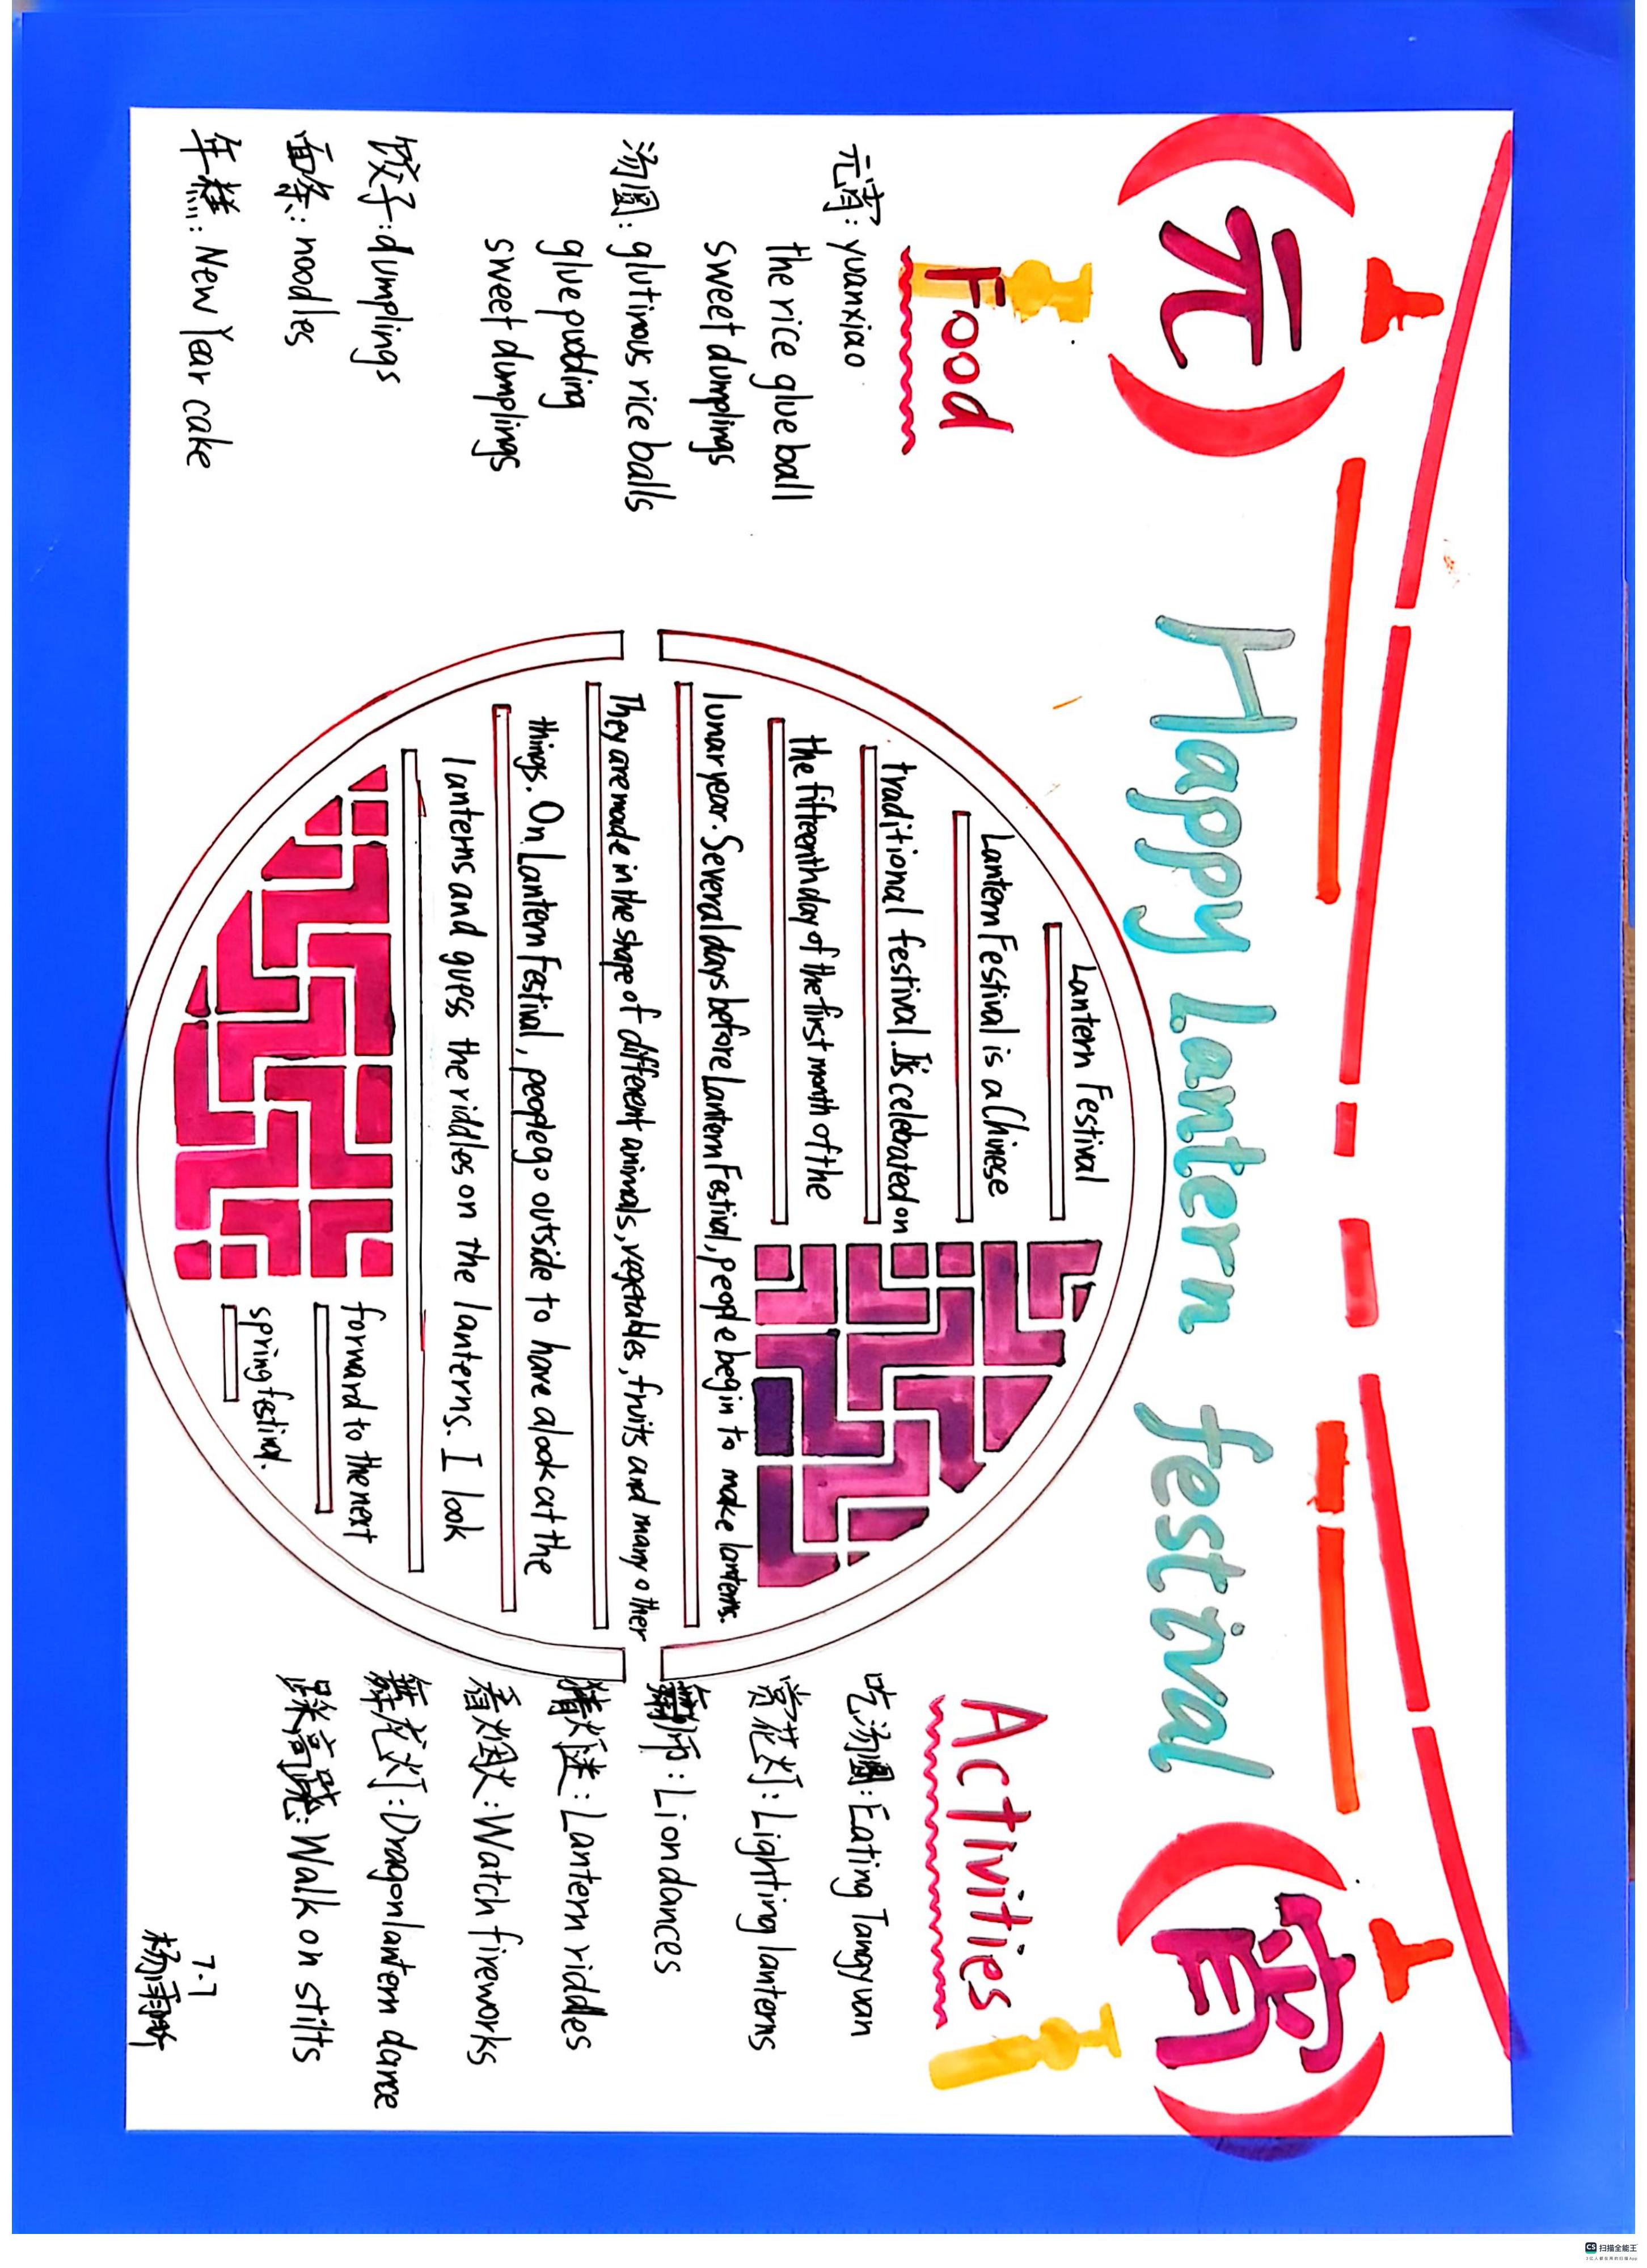 元
Happy Lantern festival
宵
Food
元宵: yuanxiao
the rice glue ball
sweet dumplings
汤圆: glutinous rice balls
glue pudding
sweet dumplings
饺子: dumplings
面条: noodles
年糕: New Year cake
Lantern Festival
Lantern Festival is a Chinese
traditional festival. It's celebrated on
the fifteenth day of the first month of the
lunar year. Several days before Lantern Festival, people begin to make lanterns.
They are made in the shape of different animals, vegetables, fruits and many other
things. On Lantern Festival, people go outside to have a look at the
lanterns and guess the riddles on the lanterns. I look
forward to the next
spring festival.
Activities
吃汤圆: Eating Tangyuan
赏花灯: Lighting lanterns
舞狮: Lion dances
猜灯谜: Lantern riddles
看烟火: Watch fireworks
舞龙灯: Dragon lantern dance
踩高跷: Walk on stilts
7.7
CS 扫描全能王
3亿人都在用的扫描App